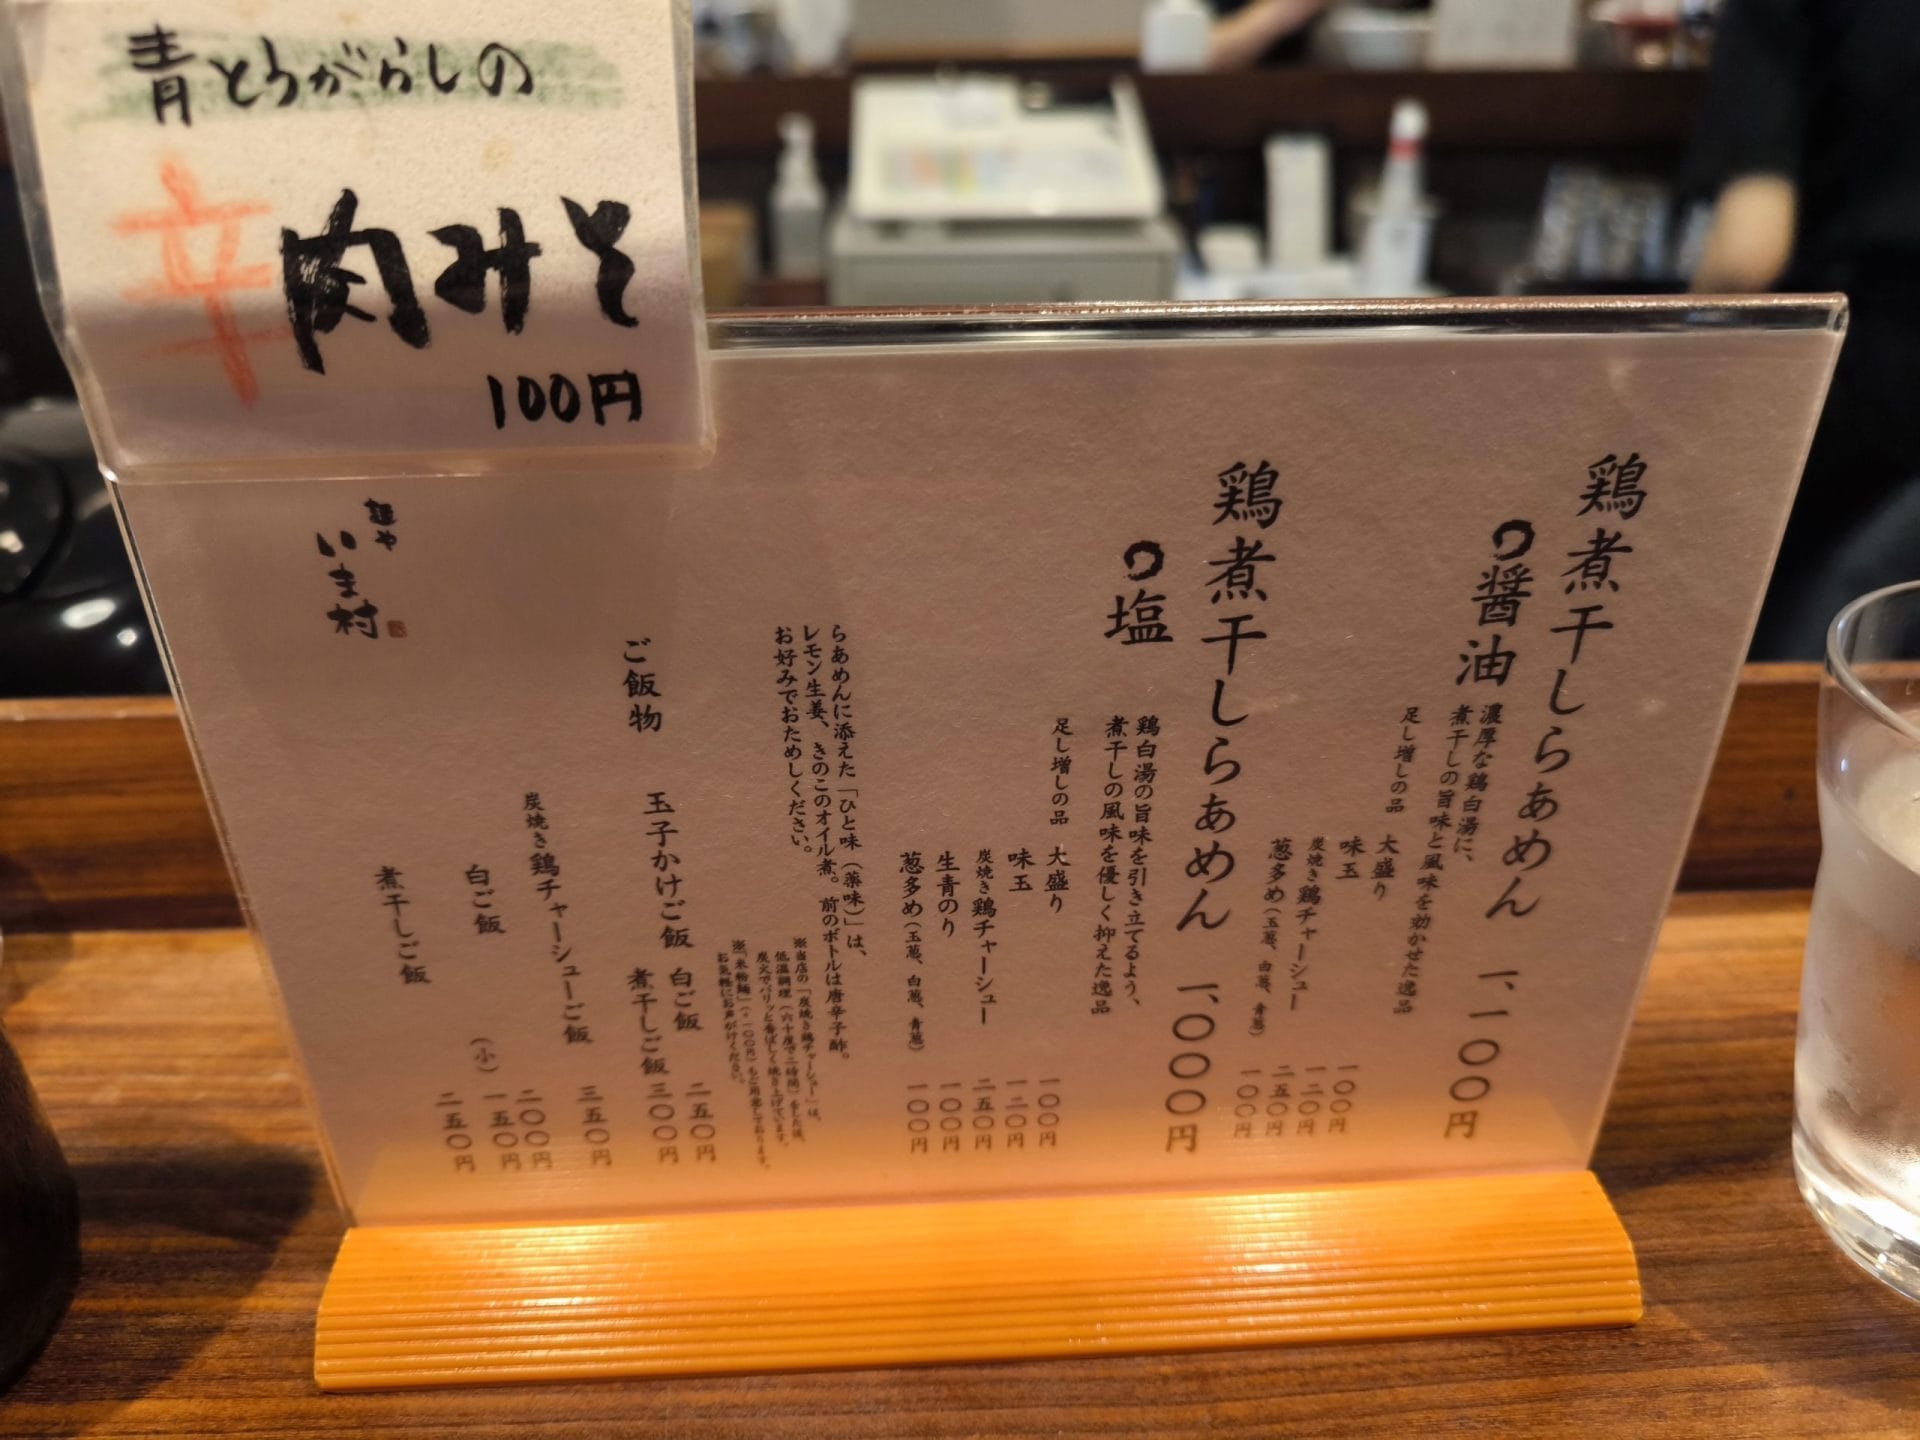 青とうがらしの
辛肉みそ
100円
鶏煮干しらぁめん 一、一〇〇円
醤油
濃厚な鶏白湯に、
煮干しの旨味と風味を効かせた逸品
足し増しの品
大盛り 一〇〇円
味玉 一二〇円
炭焼き鶏チャーシュー 二五〇円
葱多め（玉葱、白葱、青葱） 一〇〇円
鶏煮干しらぁめん 一、〇〇〇円
塩
鶏白湯の旨味を引き立てるよう、
煮干しの風味を優しく抑えた逸品
足し増しの品
大盛り 一〇〇円
味玉 一二〇円
炭焼き鶏チャーシュー 二五〇円
生青のり 一〇〇円
葱多め（玉葱、白葱、青葱） 一〇〇円
らあめんに添えた「ひと味（薬味）」は、
レモン生姜、きのこのオイル煮。前のボトルは唐辛子酢。
お好みでおためしください。
※当店の「炭焼き鶏チャーシュー」は、
低温調理（六十度で二時間）をした後、
炭火でパリッと香ばしく焼き上げています。
※「米粉麺」（+一〇〇円）もご用意しております。
お気軽にお声がけください。
ご飯物
玉子かけご飯 白ご飯 二五〇円
煮干しご飯 三〇〇円
炭焼き鶏チャーシューご飯 三五〇円
白ご飯 二〇〇円
（小） 一五〇円
煮干しご飯 二五〇円
麺や
いま村